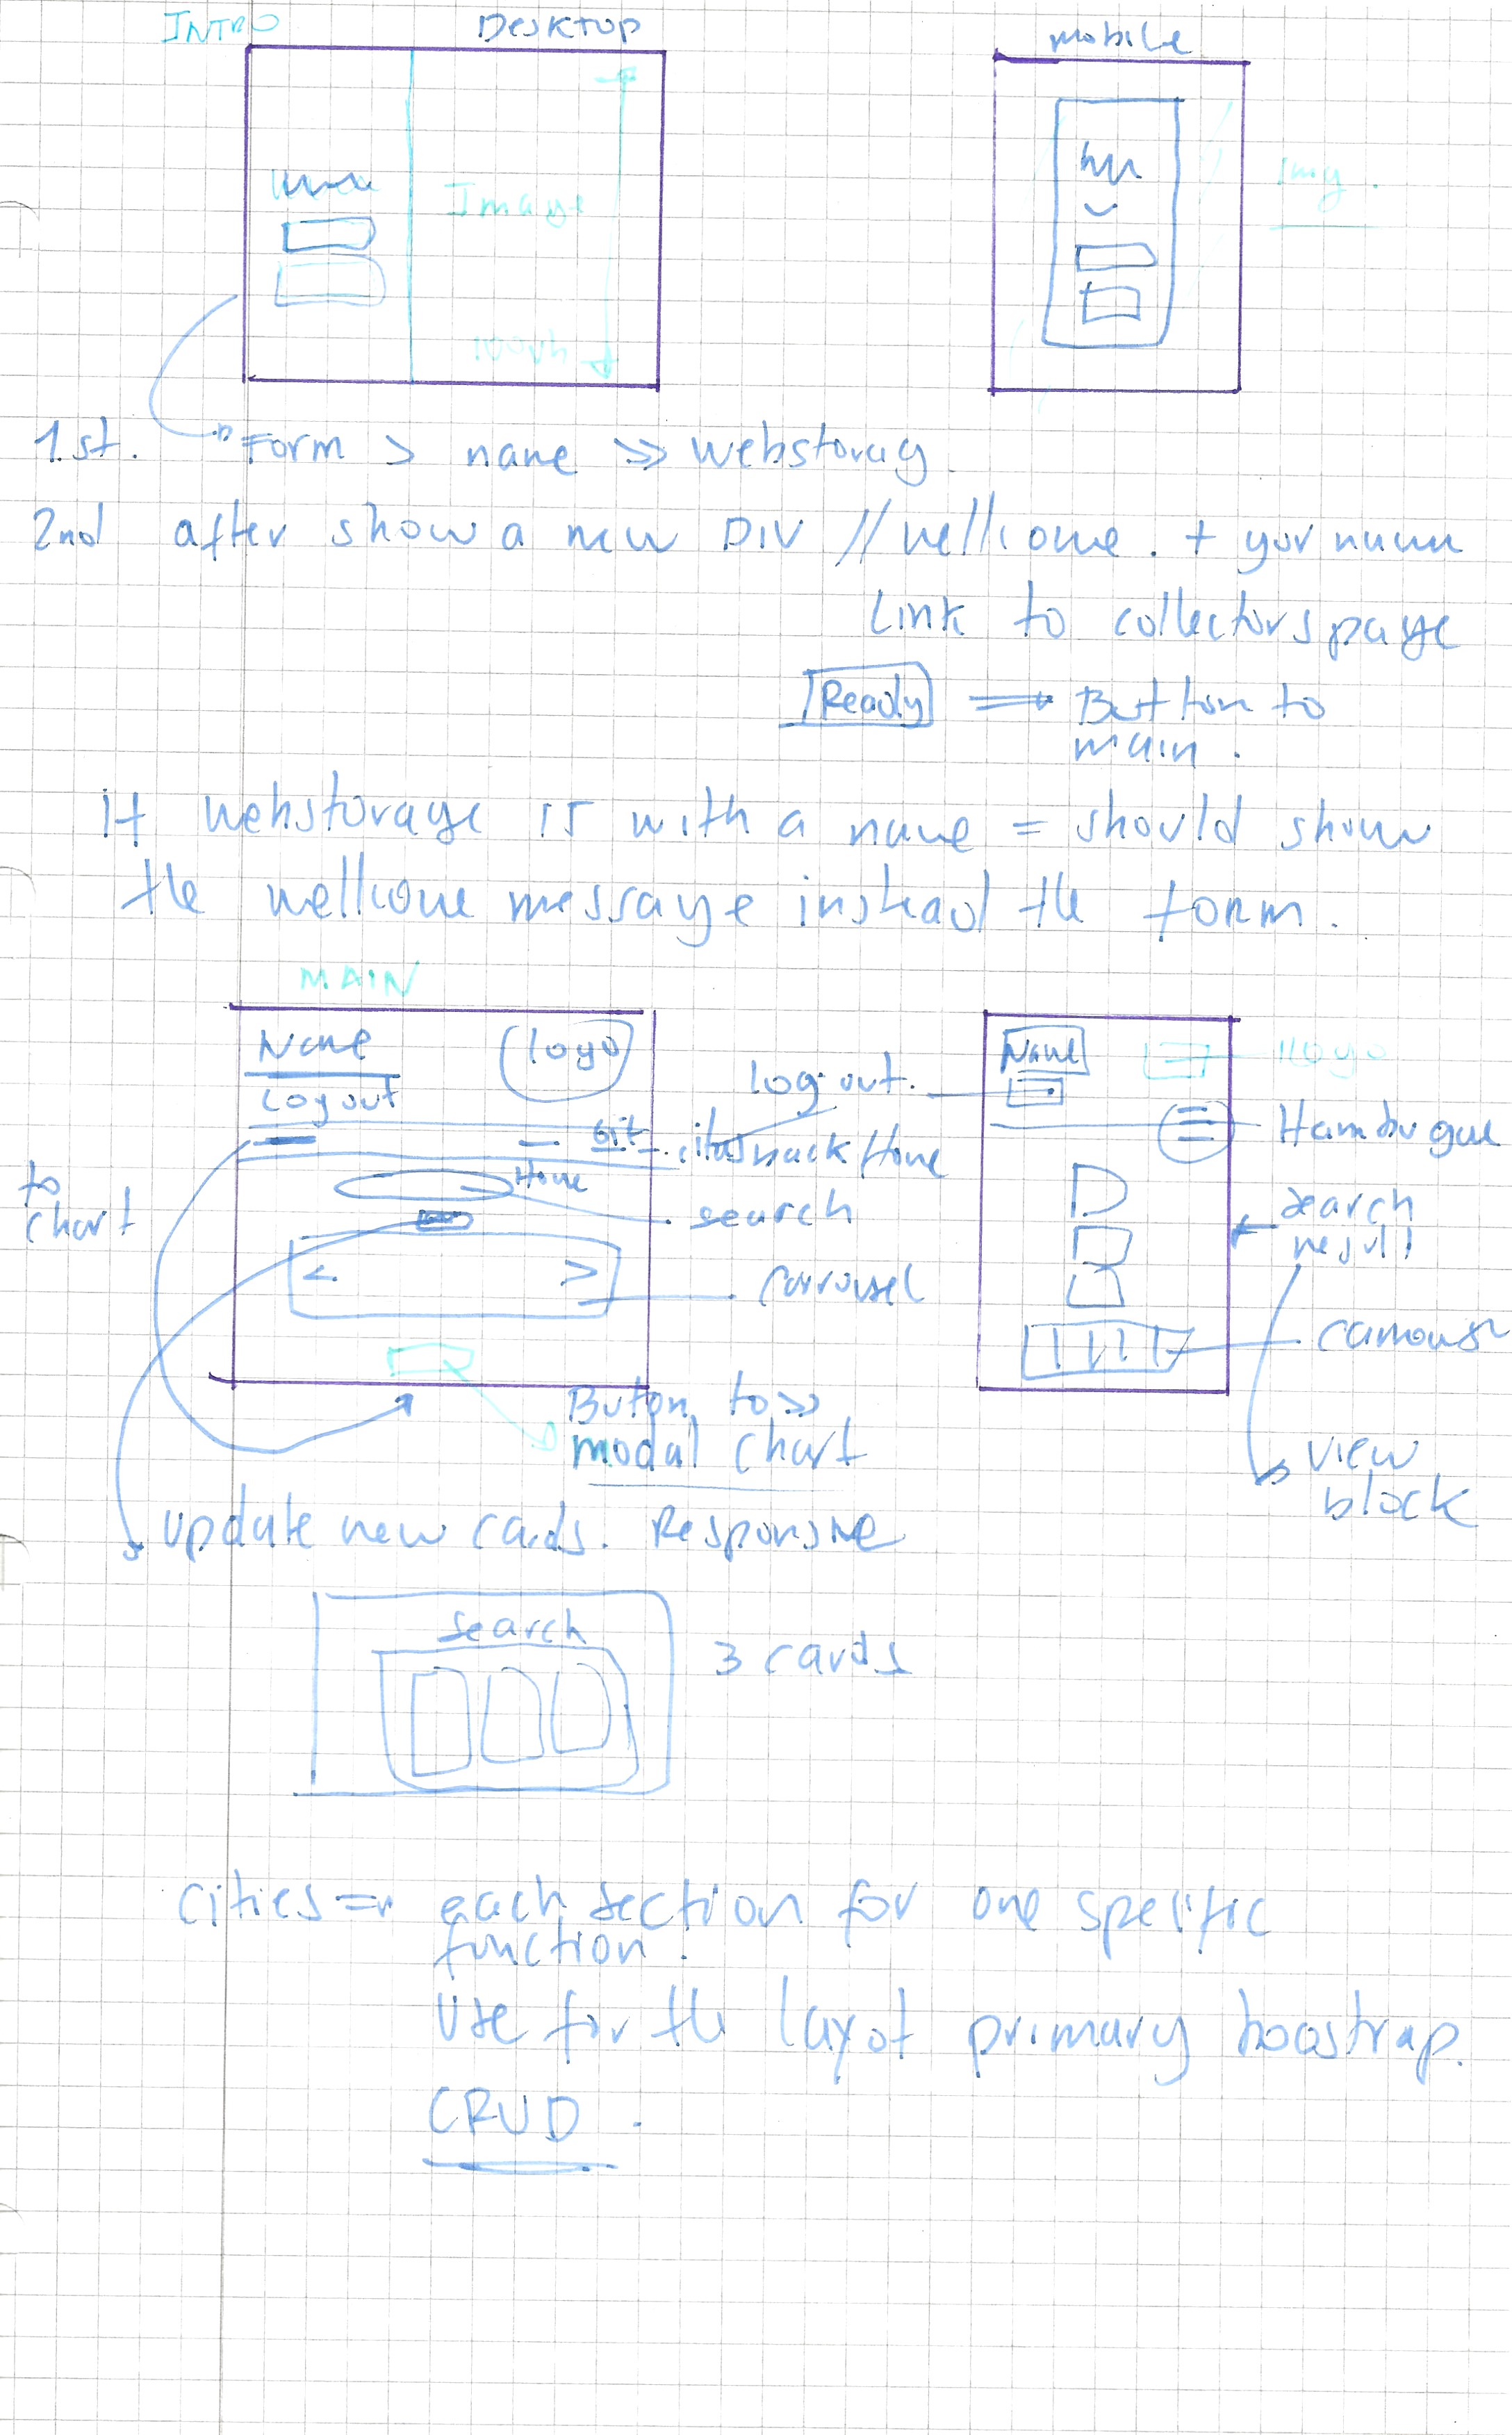 INTRO
Desktop
mobile
Image
100vh
Img.
1.st. Form > name >> webstorag.
2nd after show a new DIV // wellcome. + your name
Link to collectors page
Ready => Button to
main.
if webstorage is with a name = should show
the wellcome message instead the form.
MAIN
Name
logo
Logout
Log out.
Name
logo
Git
Hamburgue
to
chart
Home
search
search
result
<
>
carrousel
Button to >>
modal chart
view
block
update new cards. Responsive
search
3 cards
cities => each section for one specific
function.
Use for the layot primary boostrap.
CRUD.